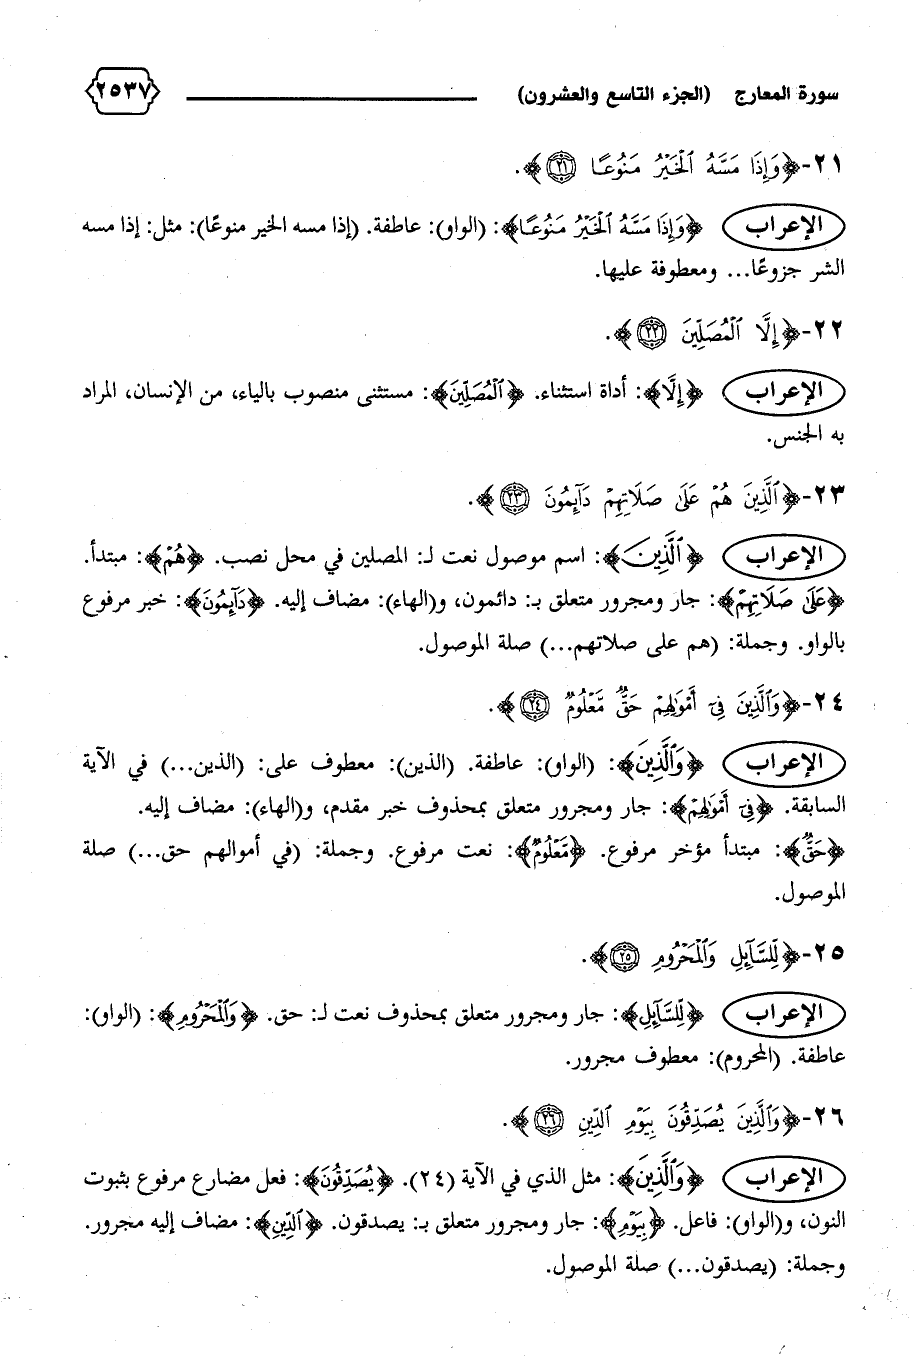 سورة المعارج (الجزء التاسع والعشرون) ٢٥٣٧
٢١-﴿وَإِذَا مَسَّهُ ٱلْخَيْرُ مَنُوعًا ۝٢١﴾.
الإعراب ﴿وَإِذَا مَسَّهُ ٱلْخَيْرُ مَنُوعًا﴾: (الواو): عاطفة. (إذا مسه الخير منوعًا): مثل: إذا مسه
الشر جزوعًا... ومعطوفة عليها.
٢٢-﴿إِلَّا ٱلْمُصَلِّينَ ۝٢٢﴾.
الإعراب ﴿إِلَّا﴾: أداة استثناء. ﴿ٱلْمُصَلِّينَ﴾: مستثنى منصوب بالياء، من الإنسان، المراد
به الجنس.
٢٣-﴿ٱلَّذِينَ هُمْ عَلَىٰ صَلَاتِهِمْ دَآئِمُونَ ۝٢٣﴾.
الإعراب ﴿ٱلَّذِينَ﴾: اسم موصول نعت لـ: المصلين في محل نصب. ﴿هُمْ﴾: مبتدأ.
﴿عَلَىٰ صَلَاتِهِمْ﴾: جار ومجرور متعلق بـ: دائمون، و(الهاء): مضاف إليه. ﴿دَآئِمُونَ﴾: خبر مرفوع
بالواو. وجملة: (هم على صلاتهم...) صلة الموصول.
٢٤-﴿وَٱلَّذِينَ فِىٓ أَمْوَٰلِهِمْ حَقٌّ مَّعْلُومٌ ۝٢٤﴾.
الإعراب ﴿وَٱلَّذِينَ﴾: (الواو): عاطفة. (الذين): معطوف على: (الذين...) في الآية
السابقة. ﴿فِىٓ أَمْوَٰلِهِمْ﴾: جار ومجرور متعلق بمحذوف خبر مقدم، و(الهاء): مضاف إليه.
﴿حَقٌّ﴾: مبتدأ مؤخر مرفوع. ﴿مَّعْلُومٌ﴾: نعت مرفوع. وجملة: (في أموالهم حق...) صلة
الموصول.
٢٥-﴿لِّلسَّآئِلِ وَٱلْمَحْرُومِ ۝٢٥﴾.
الإعراب ﴿لِّلسَّآئِلِ﴾: جار ومجرور متعلق بمحذوف نعت لـ: حق. ﴿وَٱلْمَحْرُومِ﴾: (الواو):
عاطفة. (المحروم): معطوف مجرور.
٢٦-﴿وَٱلَّذِينَ يُصَدِّقُونَ بِيَوْمِ ٱلدِّينِ ۝٢٦﴾.
الإعراب ﴿وَٱلَّذِينَ﴾: مثل الذي في الآية (٢٤). ﴿يُصَدِّقُونَ﴾: فعل مضارع مرفوع بثبوت
النون، و(الواو): فاعل. ﴿بِيَوْمِ﴾: جار ومجرور متعلق بـ: يصدقون. ﴿ٱلدِّينِ﴾: مضاف إليه مجرور.
وجملة: (يصدقون...) صلة الموصول.